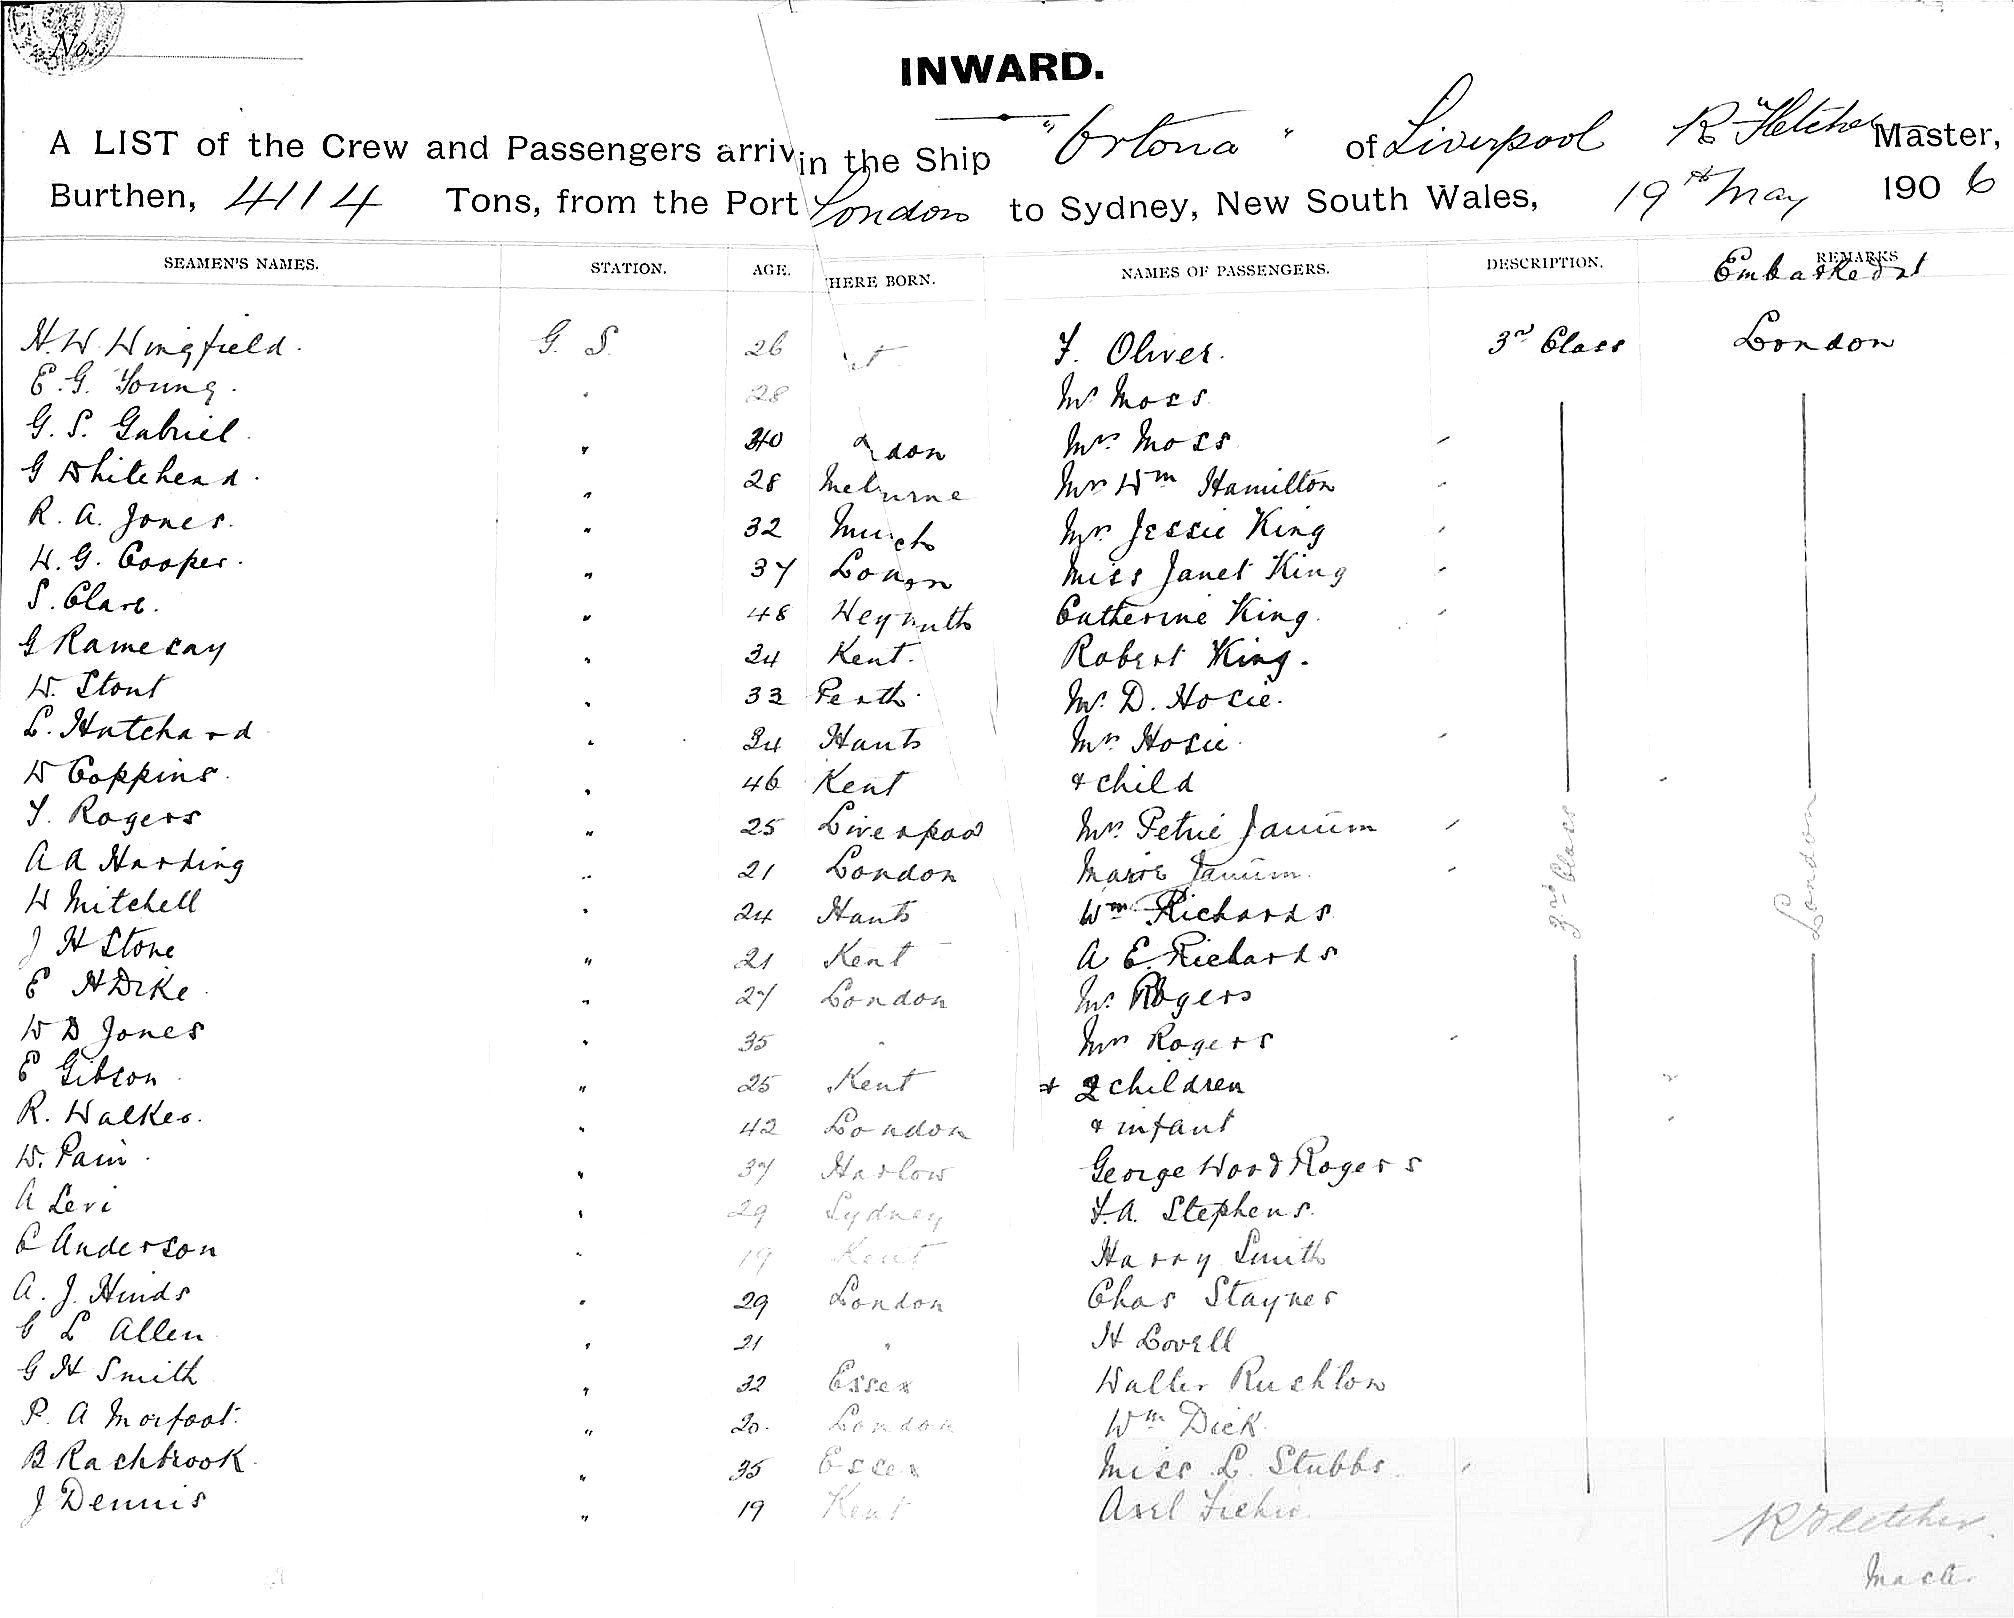 No.
INWARD.
A LIST of the Crew and Passengers arriv in the Ship "Ortona" of Liverpool R Fletcher Master,
Burthen, 4114 Tons, from the Port London to Sydney, New South Wales, 19th May 1906
SEAMEN'S NAMES. STATION. AGE. HERE BORN. NAMES OF PASSENGERS. DESCRIPTION. REMARKS Embarked at
H. W. Wingfield. G. S. 26 F. Oliver. 3rd Class London
E. G. Young. " 28 Mr Moss
G. S. Gabriel. " 30 don Mrs Moss
G Whitehead. " 28 Melurne Mrs Wm Hamilton
R. A. Jones. " 32 Mrs Jessie King
W. G. Cooper. " 37 Lonon Miss Janet King
S. Clare. " 48 Weymuth Catherine King.
G Ramesay " 34 Kent. Robert King.
W. Stout " 33 Perth. Mr. D. Hosie.
L. Hutchard " 34 Hants Mrs Hosie.
W Coppins. " 46 Kent & child
T. Rogers " 25 Liverpool Mrs Petrie
A A Harding " 21 London
W Mitchell " 24 Hants Wm Richards
J H Stone " 21 Kent A E. Richards
E H Dike. " 27 London Mr. Rogers
W D Jones " 35 " Mrs Rogers
E Gibson " 25 Kent & 2 children
R. Walker. " 42 London & infant
W. Pain. " 37 Harlow George Wood Rogers
A Levi " 29 Sydney F. A. Stephens.
C Anderson " 19 Kent Harry Smith
A. J. Hinds " 29 London Chas Stayner
C L Allen " 21 " H Lovell
G H Smith " 32 Essex Walter Rushton
P. A Morfoot. " 20. London Wm Dick.
B Rachbrook. " 35 Essex Miss L. Stubbs.
J Dennis " 19 Kent Axel
3rd Class
London
R Fletcher.
Master.